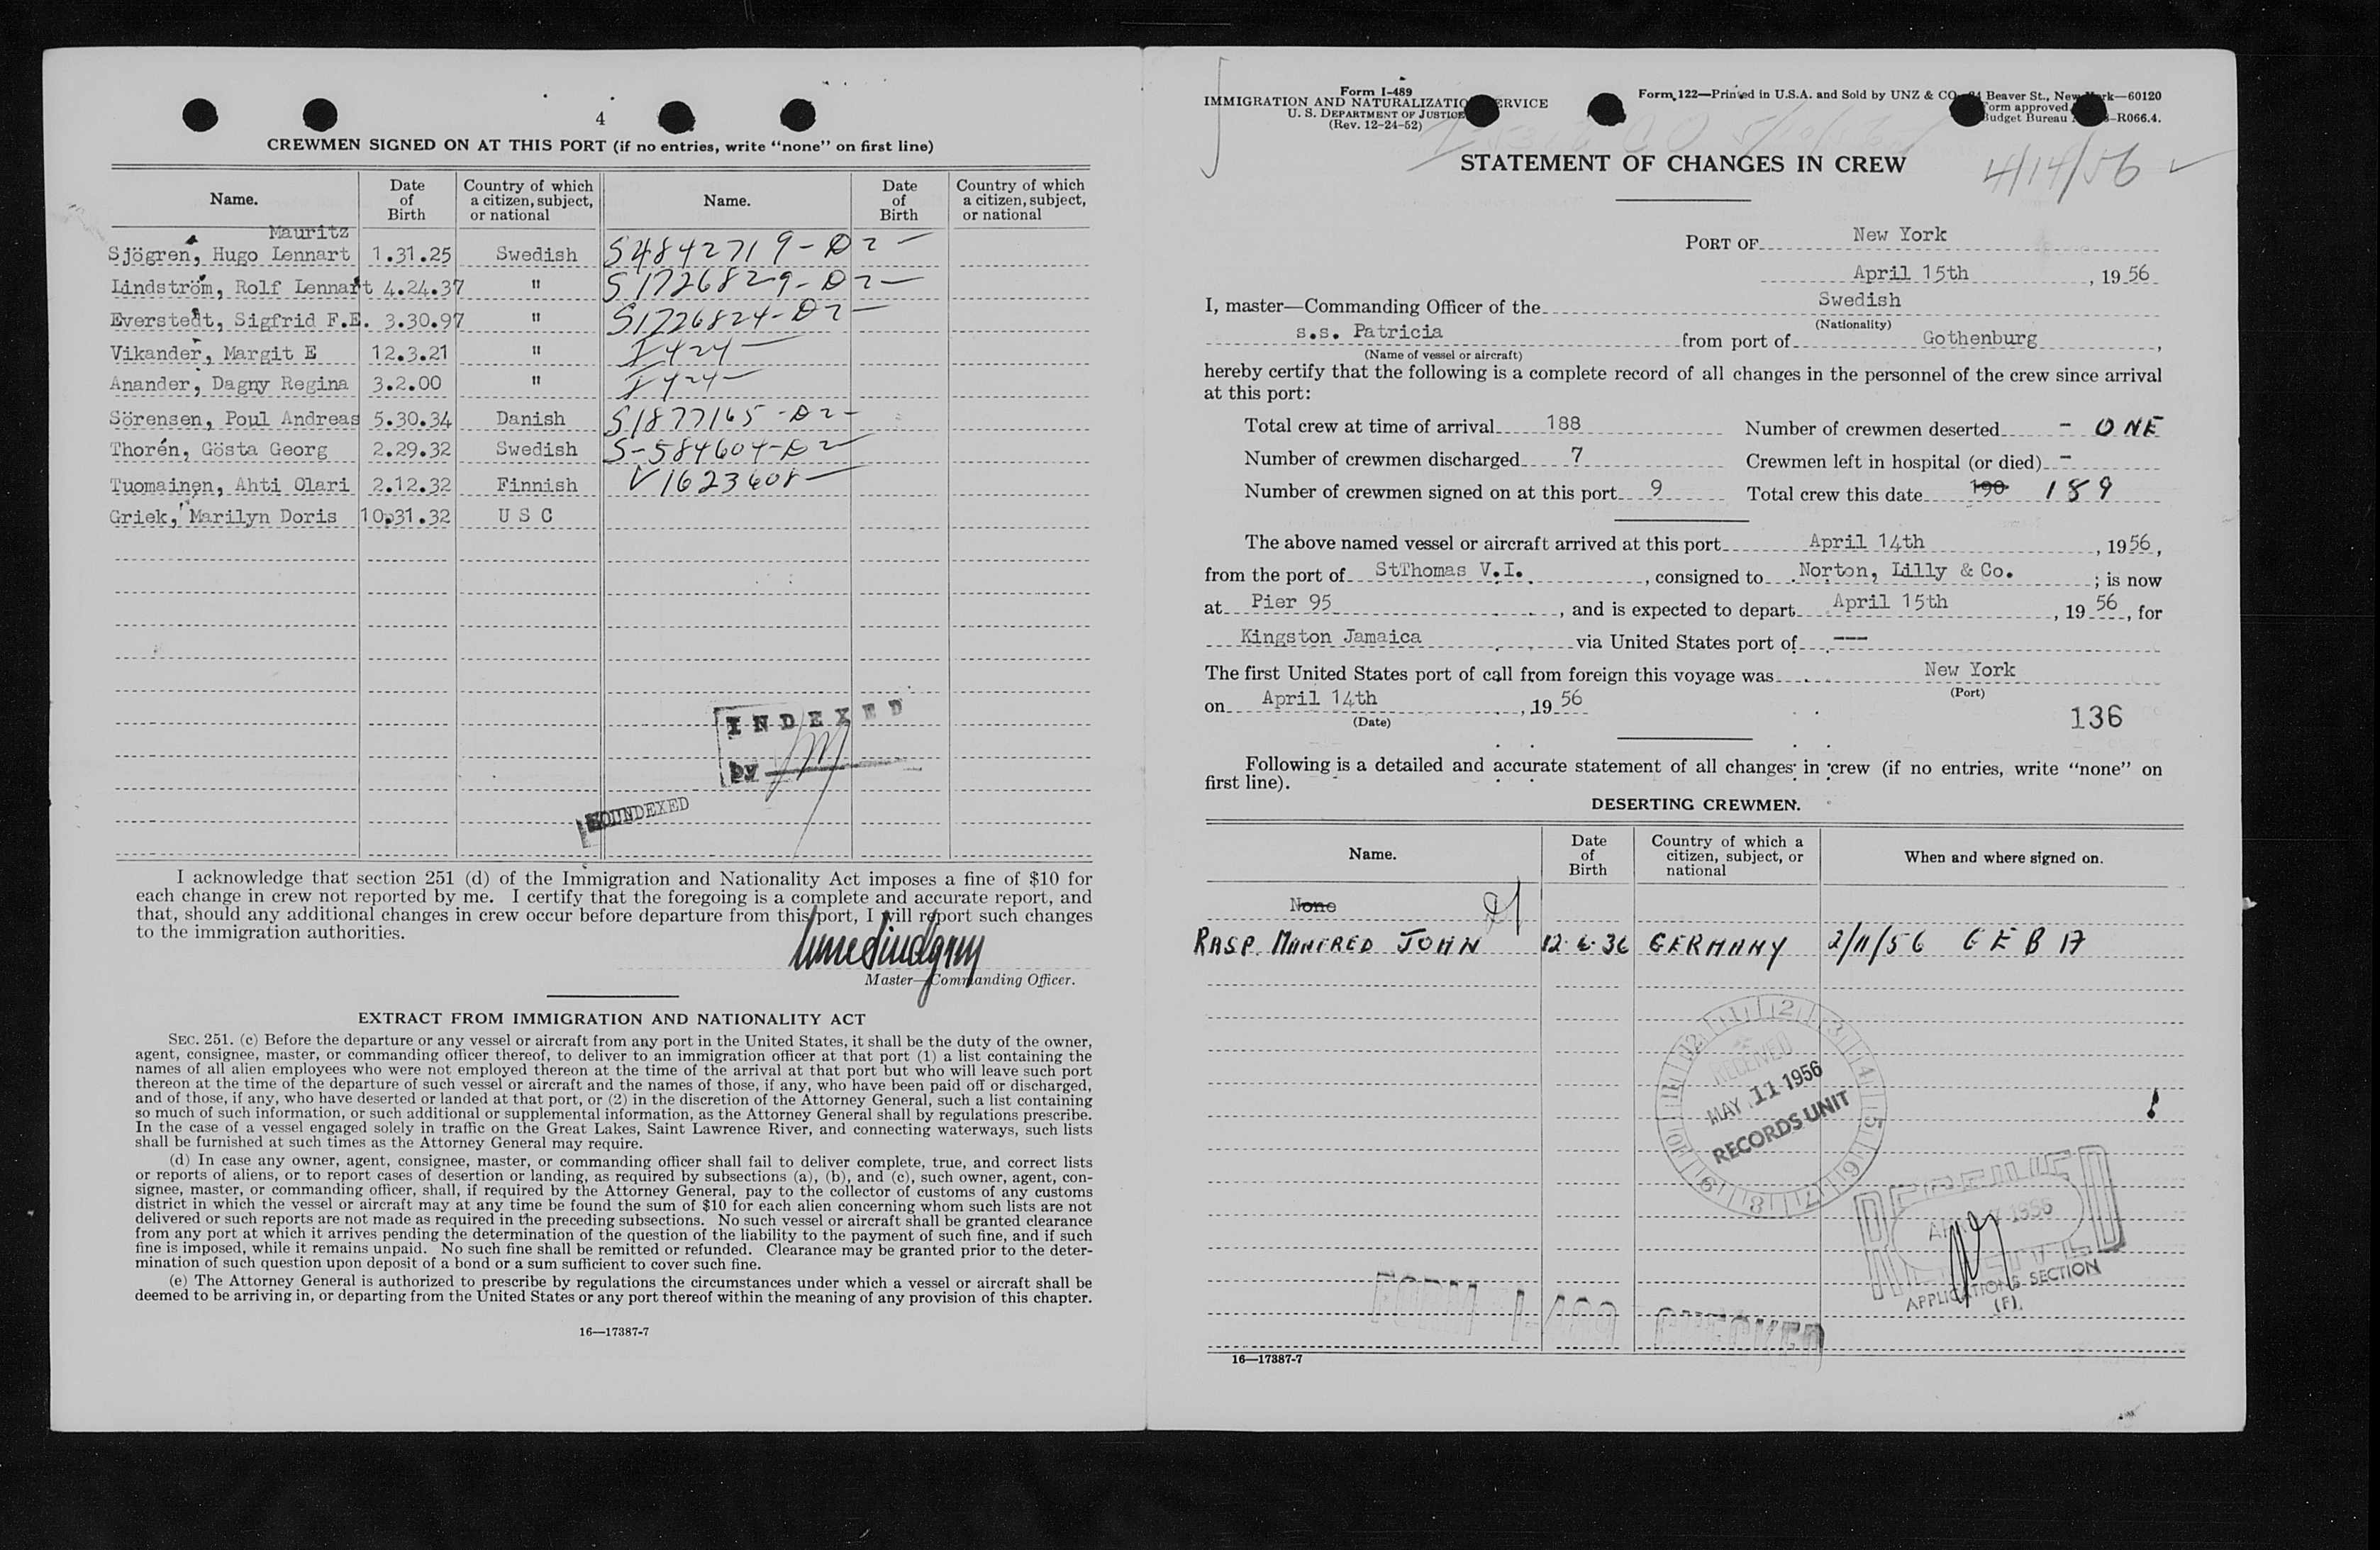 4
CREWMEN SIGNED ON AT THIS PORT (if no entries, write “none” on first line)
Name. Date of Birth Country of which a citizen, subject, or national Name. Date of Birth Country of which a citizen, subject, or national
Mauritz
Sjögren, Hugo Lennart 1.31.25 Swedish S4842719-D2-
Lindström, Rolf Lennart 4.24.37 " S1726829-D2-
Everstedt, Sigfrid F.E. 3.30.97 " S1726824-D2-
Vikander, Margit E 12.3.21 " I424-
Anander, Dagny Regina 3.2.00 " I424-
Sörensen, Poul Andreas 5.30.34 Danish S1877165-D2-
Thorén, Gösta Georg 2.29.32 Swedish S-584604-D2
Tuomainen, Ahti Olari 2.12.32 Finnish V1623608-
Griek, Marilyn Doris 10.31.32 U S C
INDEXED
by
SOUNDEXED
I acknowledge that section 251 (d) of the Immigration and Nationality Act imposes a fine of $10 for
each change in crew not reported by me. I certify that the foregoing is a complete and accurate report, and
that, should any additional changes in crew occur before departure from this port, I will report such changes
to the immigration authorities.
Master—Commanding Officer.
EXTRACT FROM IMMIGRATION AND NATIONALITY ACT
SEC. 251. (c) Before the departure or any vessel or aircraft from any port in the United States, it shall be the duty of the owner,
agent, consignee, master, or commanding officer thereof, to deliver to an immigration officer at that port (1) a list containing the
names of all alien employees who were not employed thereon at the time of the arrival at that port but who will leave such port
thereon at the time of the departure of such vessel or aircraft and the names of those, if any, who have been paid off or discharged,
and of those, if any, who have deserted or landed at that port, or (2) in the discretion of the Attorney General, such a list containing
so much of such information, or such additional or supplemental information, as the Attorney General shall by regulations prescribe.
In the case of a vessel engaged solely in traffic on the Great Lakes, Saint Lawrence River, and connecting waterways, such lists
shall be furnished at such times as the Attorney General may require.
(d) In case any owner, agent, consignee, master, or commanding officer shall fail to deliver complete, true, and correct lists
or reports of aliens, or to report cases of desertion or landing, as required by subsections (a), (b), and (c), such owner, agent, con-
signee, master, or commanding officer, shall, if required by the Attorney General, pay to the collector of customs of any customs
district in which the vessel or aircraft may at any time be found the sum of $10 for each alien concerning whom such lists are not
delivered or such reports are not made as required in the preceding subsections. No such vessel or aircraft shall be granted clearance
from any port at which it arrives pending the determination of the question of the liability to the payment of such fine, and if such
fine is imposed, while it remains unpaid. No such fine shall be remitted or refunded. Clearance may be granted prior to the deter-
mination of such question upon deposit of a bond or a sum sufficient to cover such fine.
(e) The Attorney General is authorized to prescribe by regulations the circumstances under which a vessel or aircraft shall be
deemed to be arriving in, or departing from the United States or any port thereof within the meaning of any provision of this chapter.
16—17387-7
Form I-489
IMMIGRATION AND NATURALIZATION SERVICE
U. S. DEPARTMENT OF JUSTICE
(Rev. 12-24-52)
Form 122—Printed in U.S.A. and Sold by UNZ & CO. Beaver St., New York—60120
Form approved.
Budget Bureau -R066.4.
STATEMENT OF CHANGES IN CREW
4/14/56
PORT OF New York
April 15th, 19 56
I, master—Commanding Officer of the Swedish
(Nationality)
s.s. Patricia from port of Gothenburg,
(Name of vessel or aircraft)
hereby certify that the following is a complete record of all changes in the personnel of the crew since arrival
at this port:
Total crew at time of arrival 188 Number of crewmen deserted - ONE
Number of crewmen discharged 7 Crewmen left in hospital (or died) -
Number of crewmen signed on at this port 9 Total crew this date 190 189
The above named vessel or aircraft arrived at this port April 14th, 1956,
from the port of StThomas V.I., consigned to Norton, Lilly & Co.; is now
at Pier 95, and is expected to depart April 15th, 19 56, for
Kingston Jamaica via United States port of ---
The first United States port of call from foreign this voyage was New York
(Port)
on April 14th, 19 56
(Date)
136
Following is a detailed and accurate statement of all changes in crew (if no entries, write “none” on
first line).
DESERTING CREWMEN.
Name. Date of Birth Country of which a citizen, subject, or national When and where signed on.
None
RASP. MANFRED JOHN 12·6·36 GERMANY 2/11/56 GEB 17
RECEIVED
MAY 11 1956
RECORDS UNIT
RECEIVED
1956
APPLICATIONS SECTION
(F).
FORM I-489 CHECKED
16—17387-7